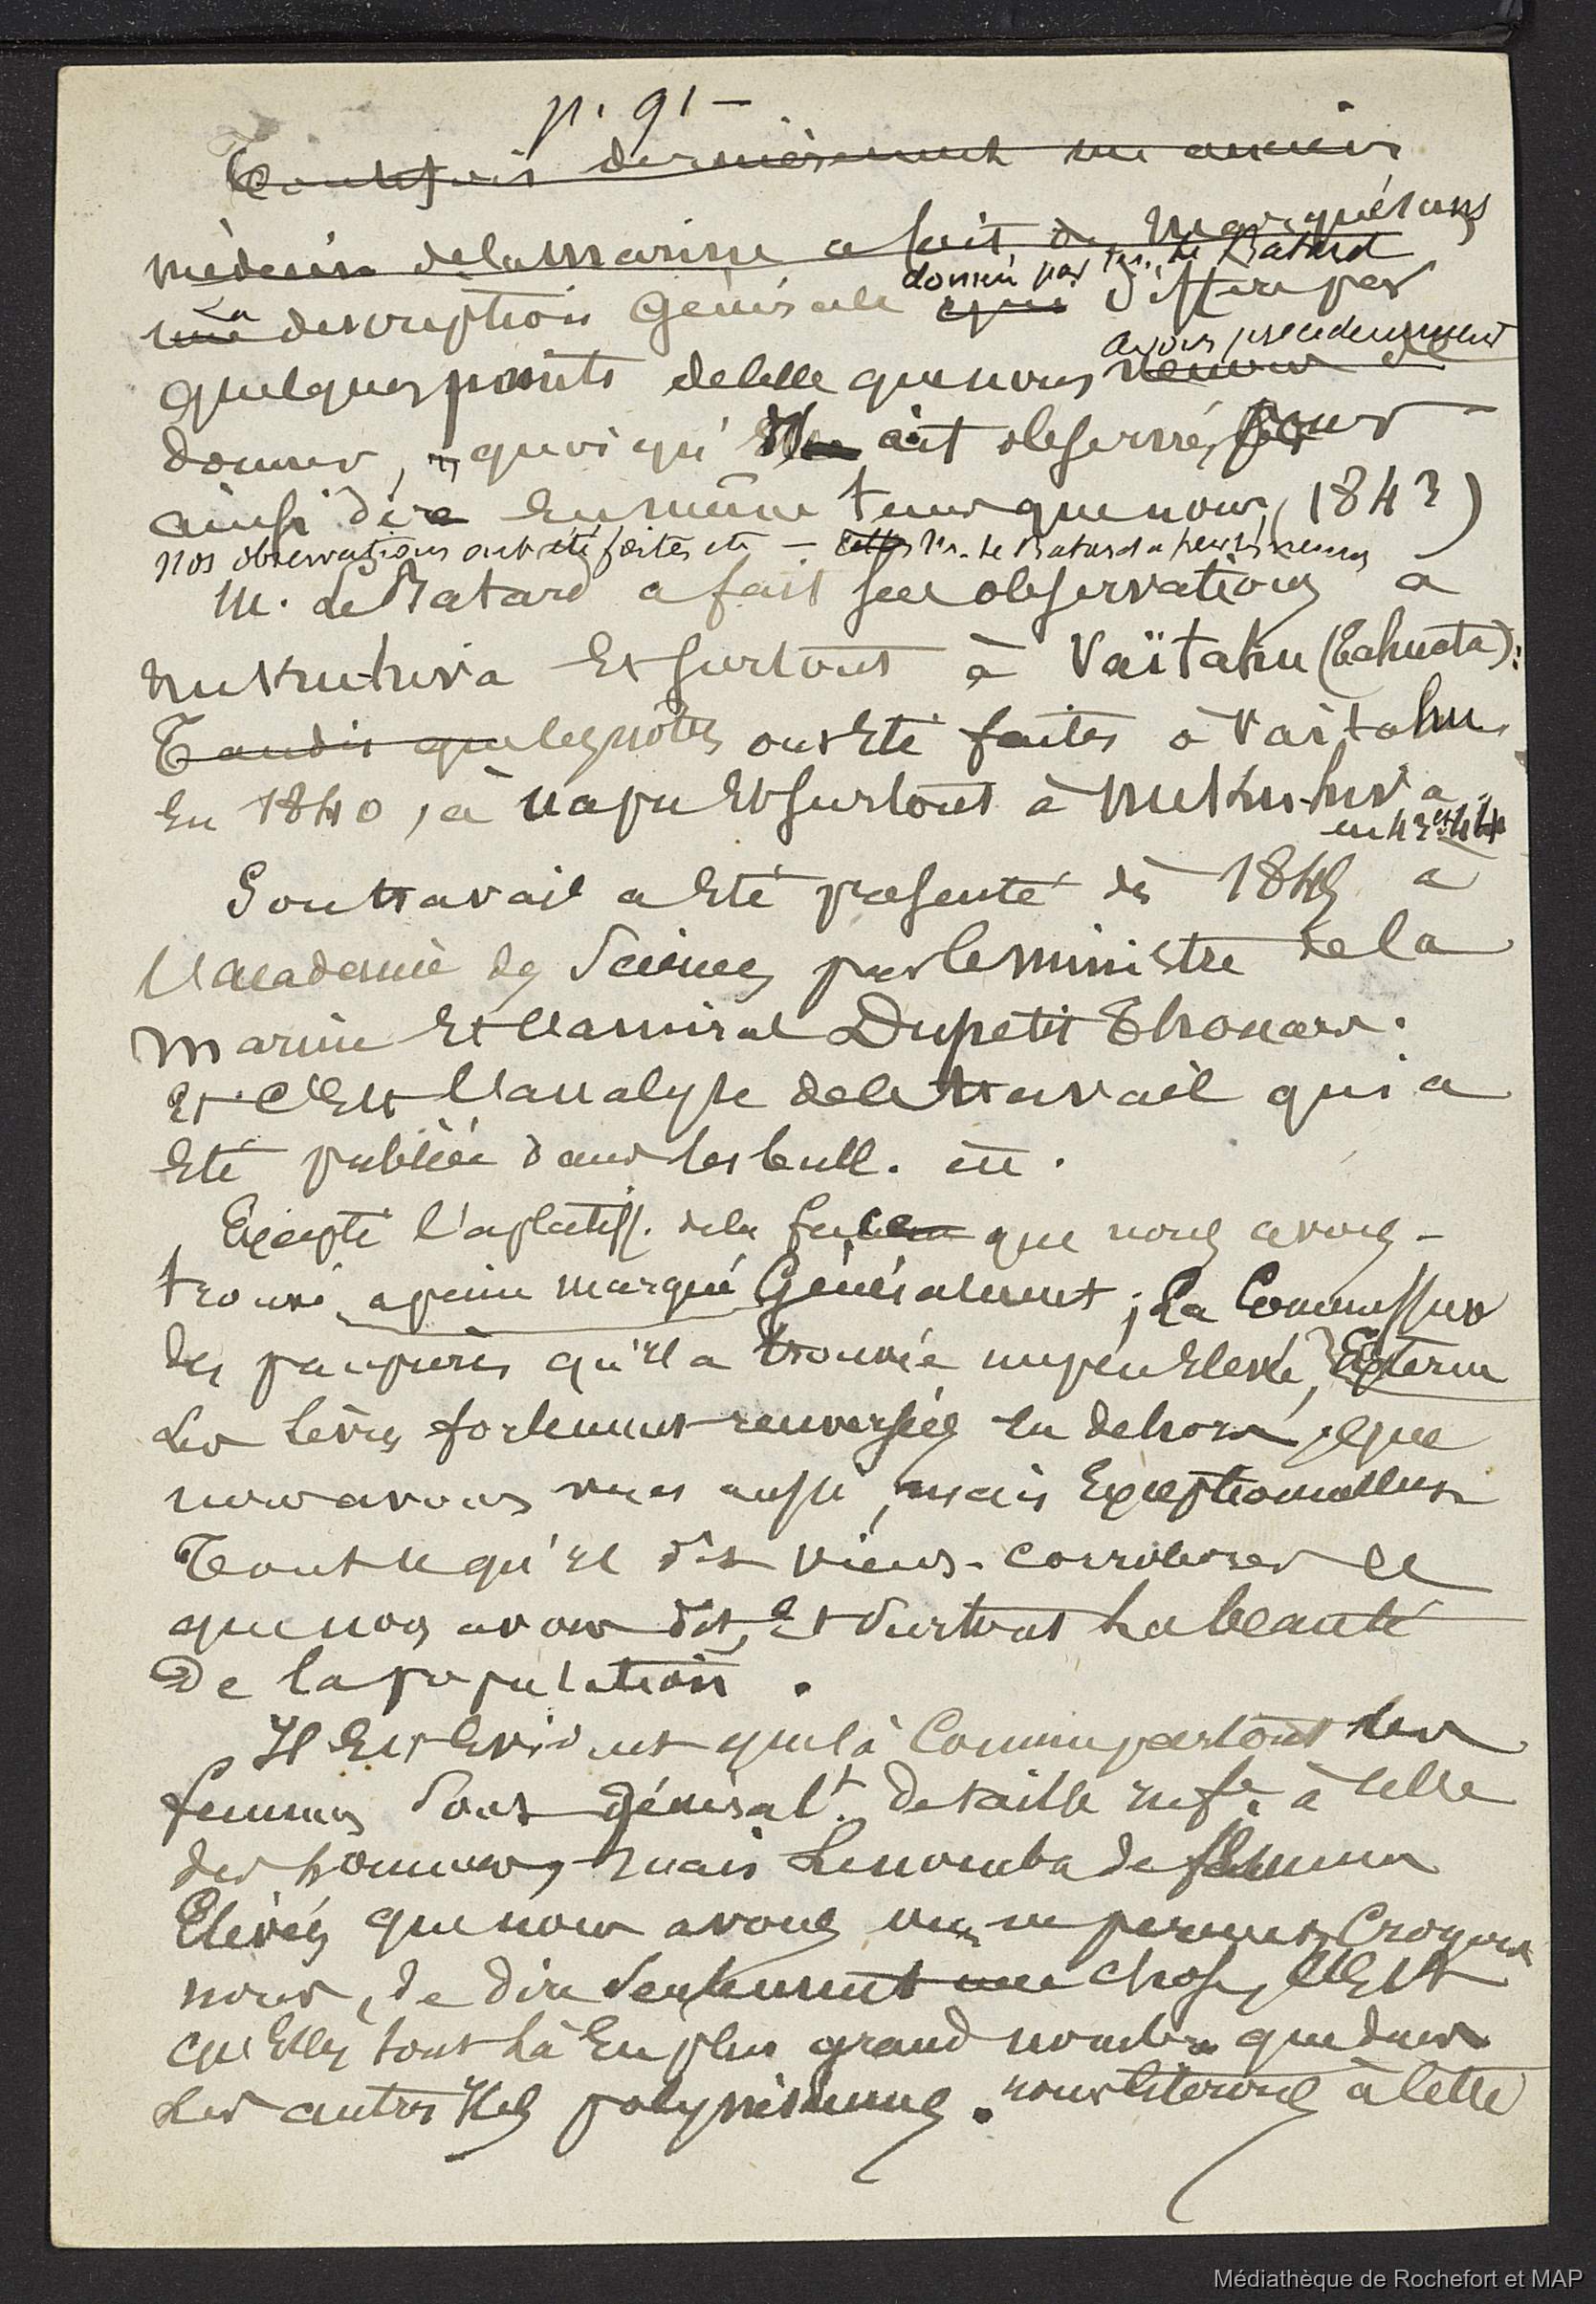 p. 91 —
Toutefois dernièrement un ancien
médecin de la marine a fait de Marquésans
donnée par Mr. Le Batard
une La description générale que diffère par
avons précédemment
quelques points de celle que nous venons de
donner, quoi qu'il ait observé, pour
ainsi dire en même tems que nous, (1843)
nos observations ont été faites etc — celles Mr. Le Batard a
M. Le Batard a fait ses observations à
nukuhiva et surtout à Vaïtahu (Tahuata):
Tandis que les nôtres ont été faites à Vaïtahu
en 1840, à uapu et surtout à Nukuhiva
en 43 et 44
Son travail a été présenté dès 1845 à
l'académie des Sciences par le ministre de la
marine et l'amiral Dupetit Thouars.
et c'est l'analyse de ce travail qui a
été publiée dans les bull. etc.
Excepté l'aplatiss. de la face que nous avons
trouvé à peine marqué généralement; La Commissure
des paupières qu'il a trouvée un peu élevée, Externe
Les lèvres fortement renversées en dehors, que
nous avons vues aussi, mais exceptionnellemt
Tout ce qu'il dit vient corroborer ce
que nous avons dit, et surtout la beauté
De la population.
Il est évident que là comme partout les
femmes sont généralt. de taille infre. à celle
des hommes, mais le nombre de femmes
Élevées que nous avons vues permet, croyons
nous, de dire seulement une chose, c'est
qu'elles sont là en plus grand nombre que dans
les autres Iles polynésiennes. nous citerons à cette
Médiathèque de Rochefort et MAP